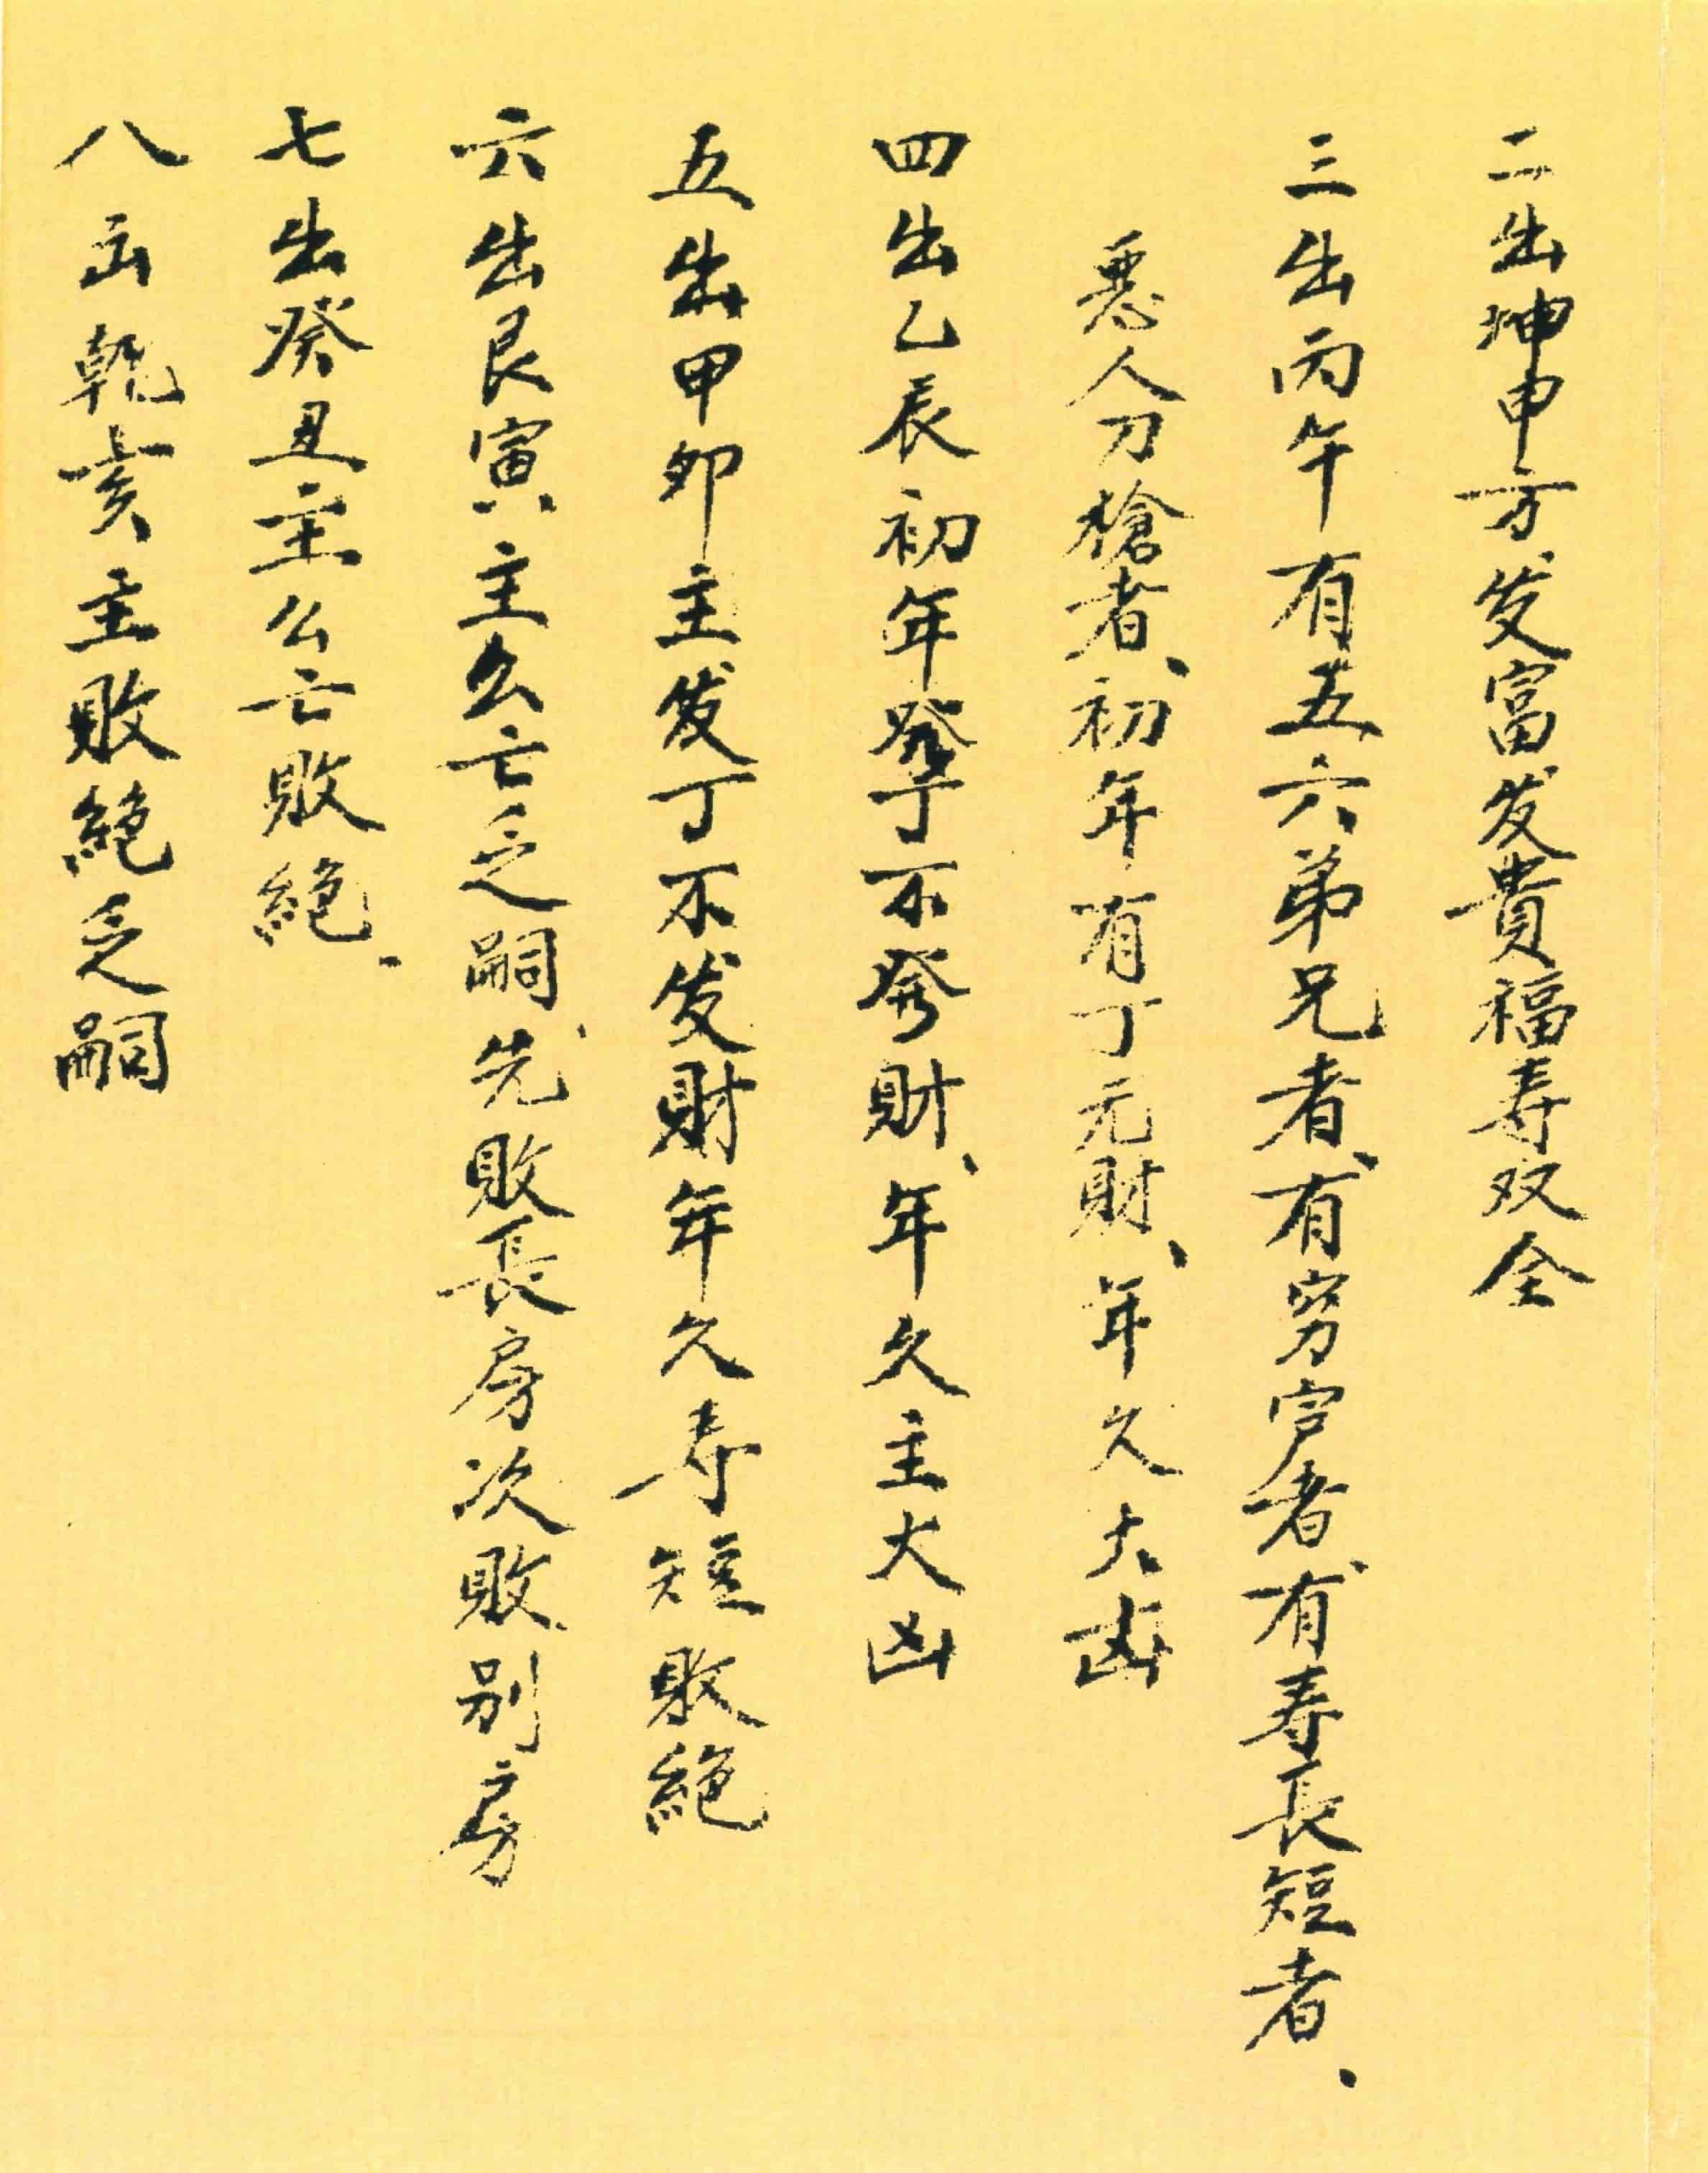 二出坤申方、发富发貴福寿双全
三出丙午有五六弟兄者、有穷户者、有寿長短者、
悪人刀槍者、初年有丁元財、年久大凶
四出乙辰初年發丁不發財、年久主大凶
五出甲卯主发丁不发財年久寿短敗絕
六出艮寅主么亡乏嗣、先敗長房次敗别房
七出癸丑主么亡敗絕、
八出乾亥主敗絕乏嗣